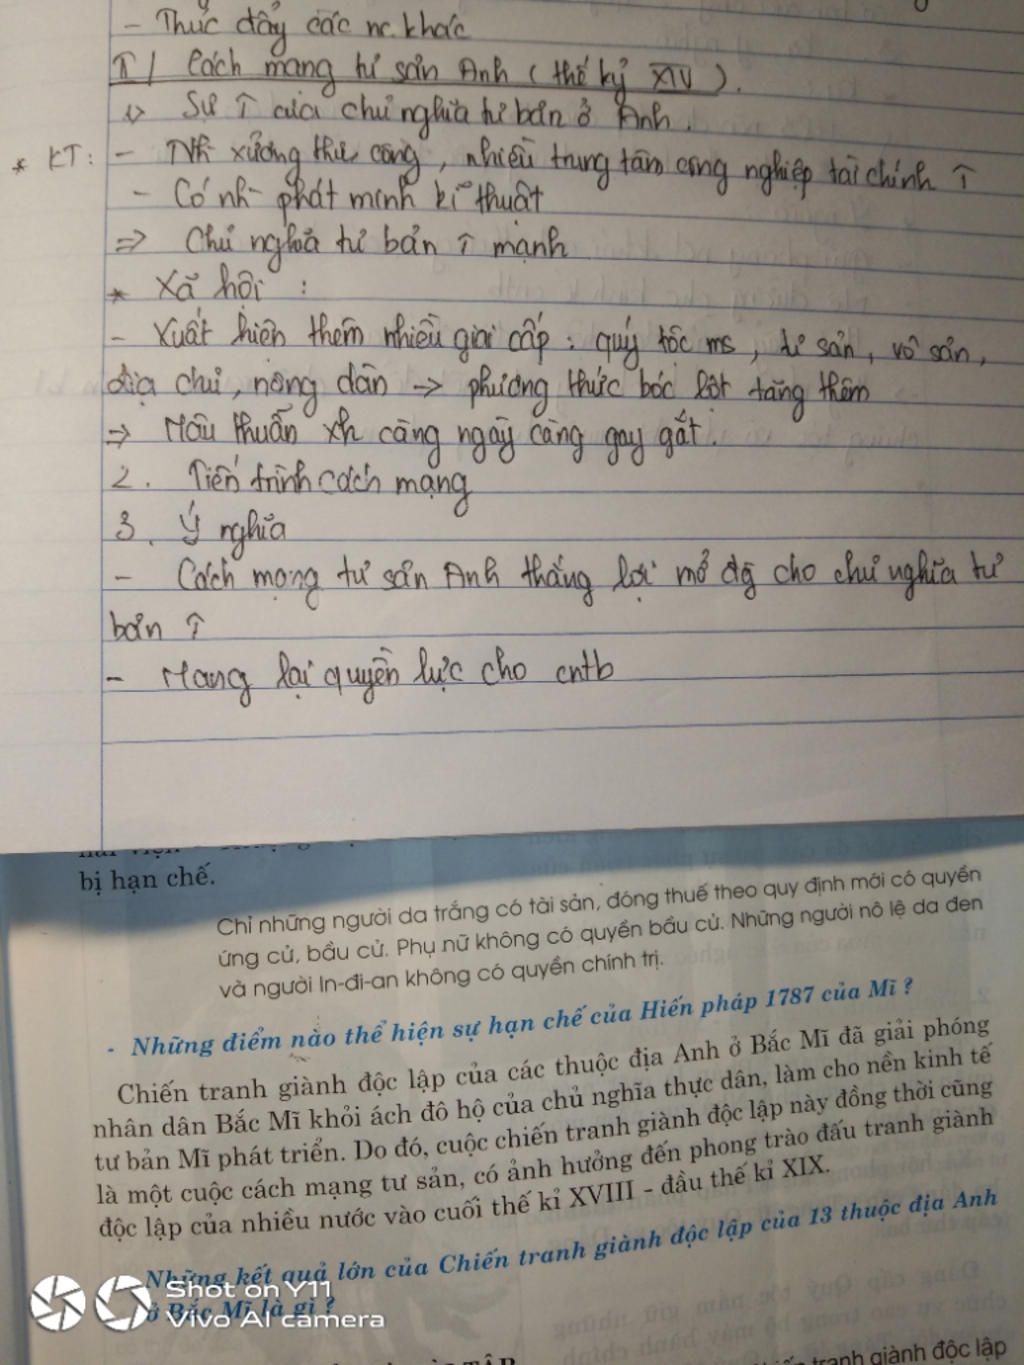 - Thúc đẩy các nc khác
II / Cách mạng tư sản Anh ( thế kỷ XIV ).
1) Sự ↑ của chủ nghĩa tư bản ở Anh.
* KT: - Nh xưởng thủ công, nhiều trung tâm công nghiệp tài chính ↑
- Có nh phát minh kĩ thuật
=> Chủ nghĩa tư bản ↑ mạnh
* Xã hội :
- Xuất hiện thêm nhiều giai cấp : quý tộc ms, tư sản, vô sản,
địa chủ, nông dân -> phương thức bóc lột tăng thêm
=> Mâu thuẫn xh càng ngày càng gay gắt.
2. Tiến trình cách mạng
3. Ý nghĩa
- Cách mạng tư sản Anh thắng lợi mở đg cho chủ nghĩa tư
bản ↑
- Mang lại quyền lực cho cntb
bị hạn chế.
Chỉ những người da trắng có tài sản, đóng thuế theo quy định mới có quyền
ứng cử, bầu cử. Phụ nữ không có quyền bầu cử. Những người nô lệ da đen
và người In-đi-an không có quyền chính trị.
- Những điểm nào thể hiện sự hạn chế của Hiến pháp 1787 của Mĩ ?
Chiến tranh giành độc lập của các thuộc địa Anh ở Bắc Mĩ đã giải phóng
nhân dân Bắc Mĩ khỏi ách đô hộ của chủ nghĩa thực dân, làm cho nền kinh tế
tư bản Mĩ phát triển. Do đó, cuộc chiến tranh giành độc lập này đồng thời cũng
là một cuộc cách mạng tư sản, có ảnh hưởng đến phong trào đấu tranh giành
độc lập của nhiều nước vào cuối thế kỉ XVIII - đầu thế kỉ XIX.
Những kết quả lớn của Chiến tranh giành độc lập của 13 thuộc địa Anh
ở Bắc Mĩ là gì ?
Shot on Y11
Vivo AI camera
tranh giành độc lập